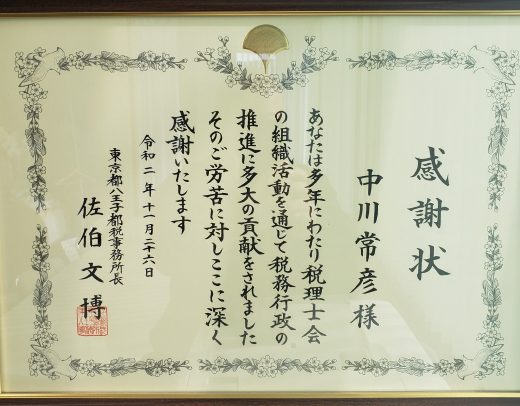 感謝状
中川常彦様
あなたは多年にわたり税理士会
の組織活動を通じて税務行政の
推進に多大の貢献をされました
そのご労苦に対しここに深く
感謝いたします
令和二年十一月二十六日
東京都八王子都税事務所長
佐伯文博